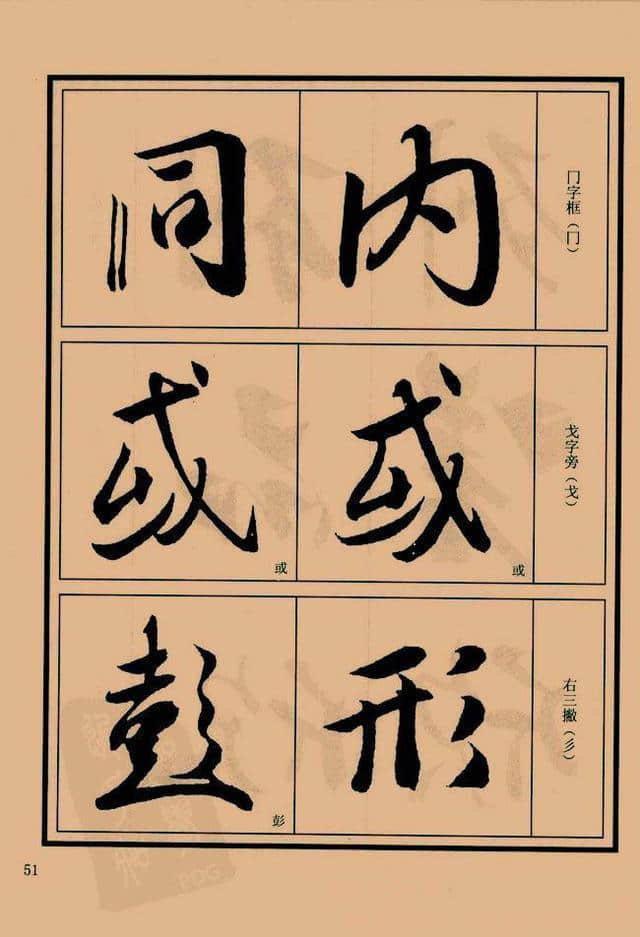 冂字框（冂）
内
同
戈字旁（戈）
或
或
或
或
右三撇（彡）
形
彭
彭
51